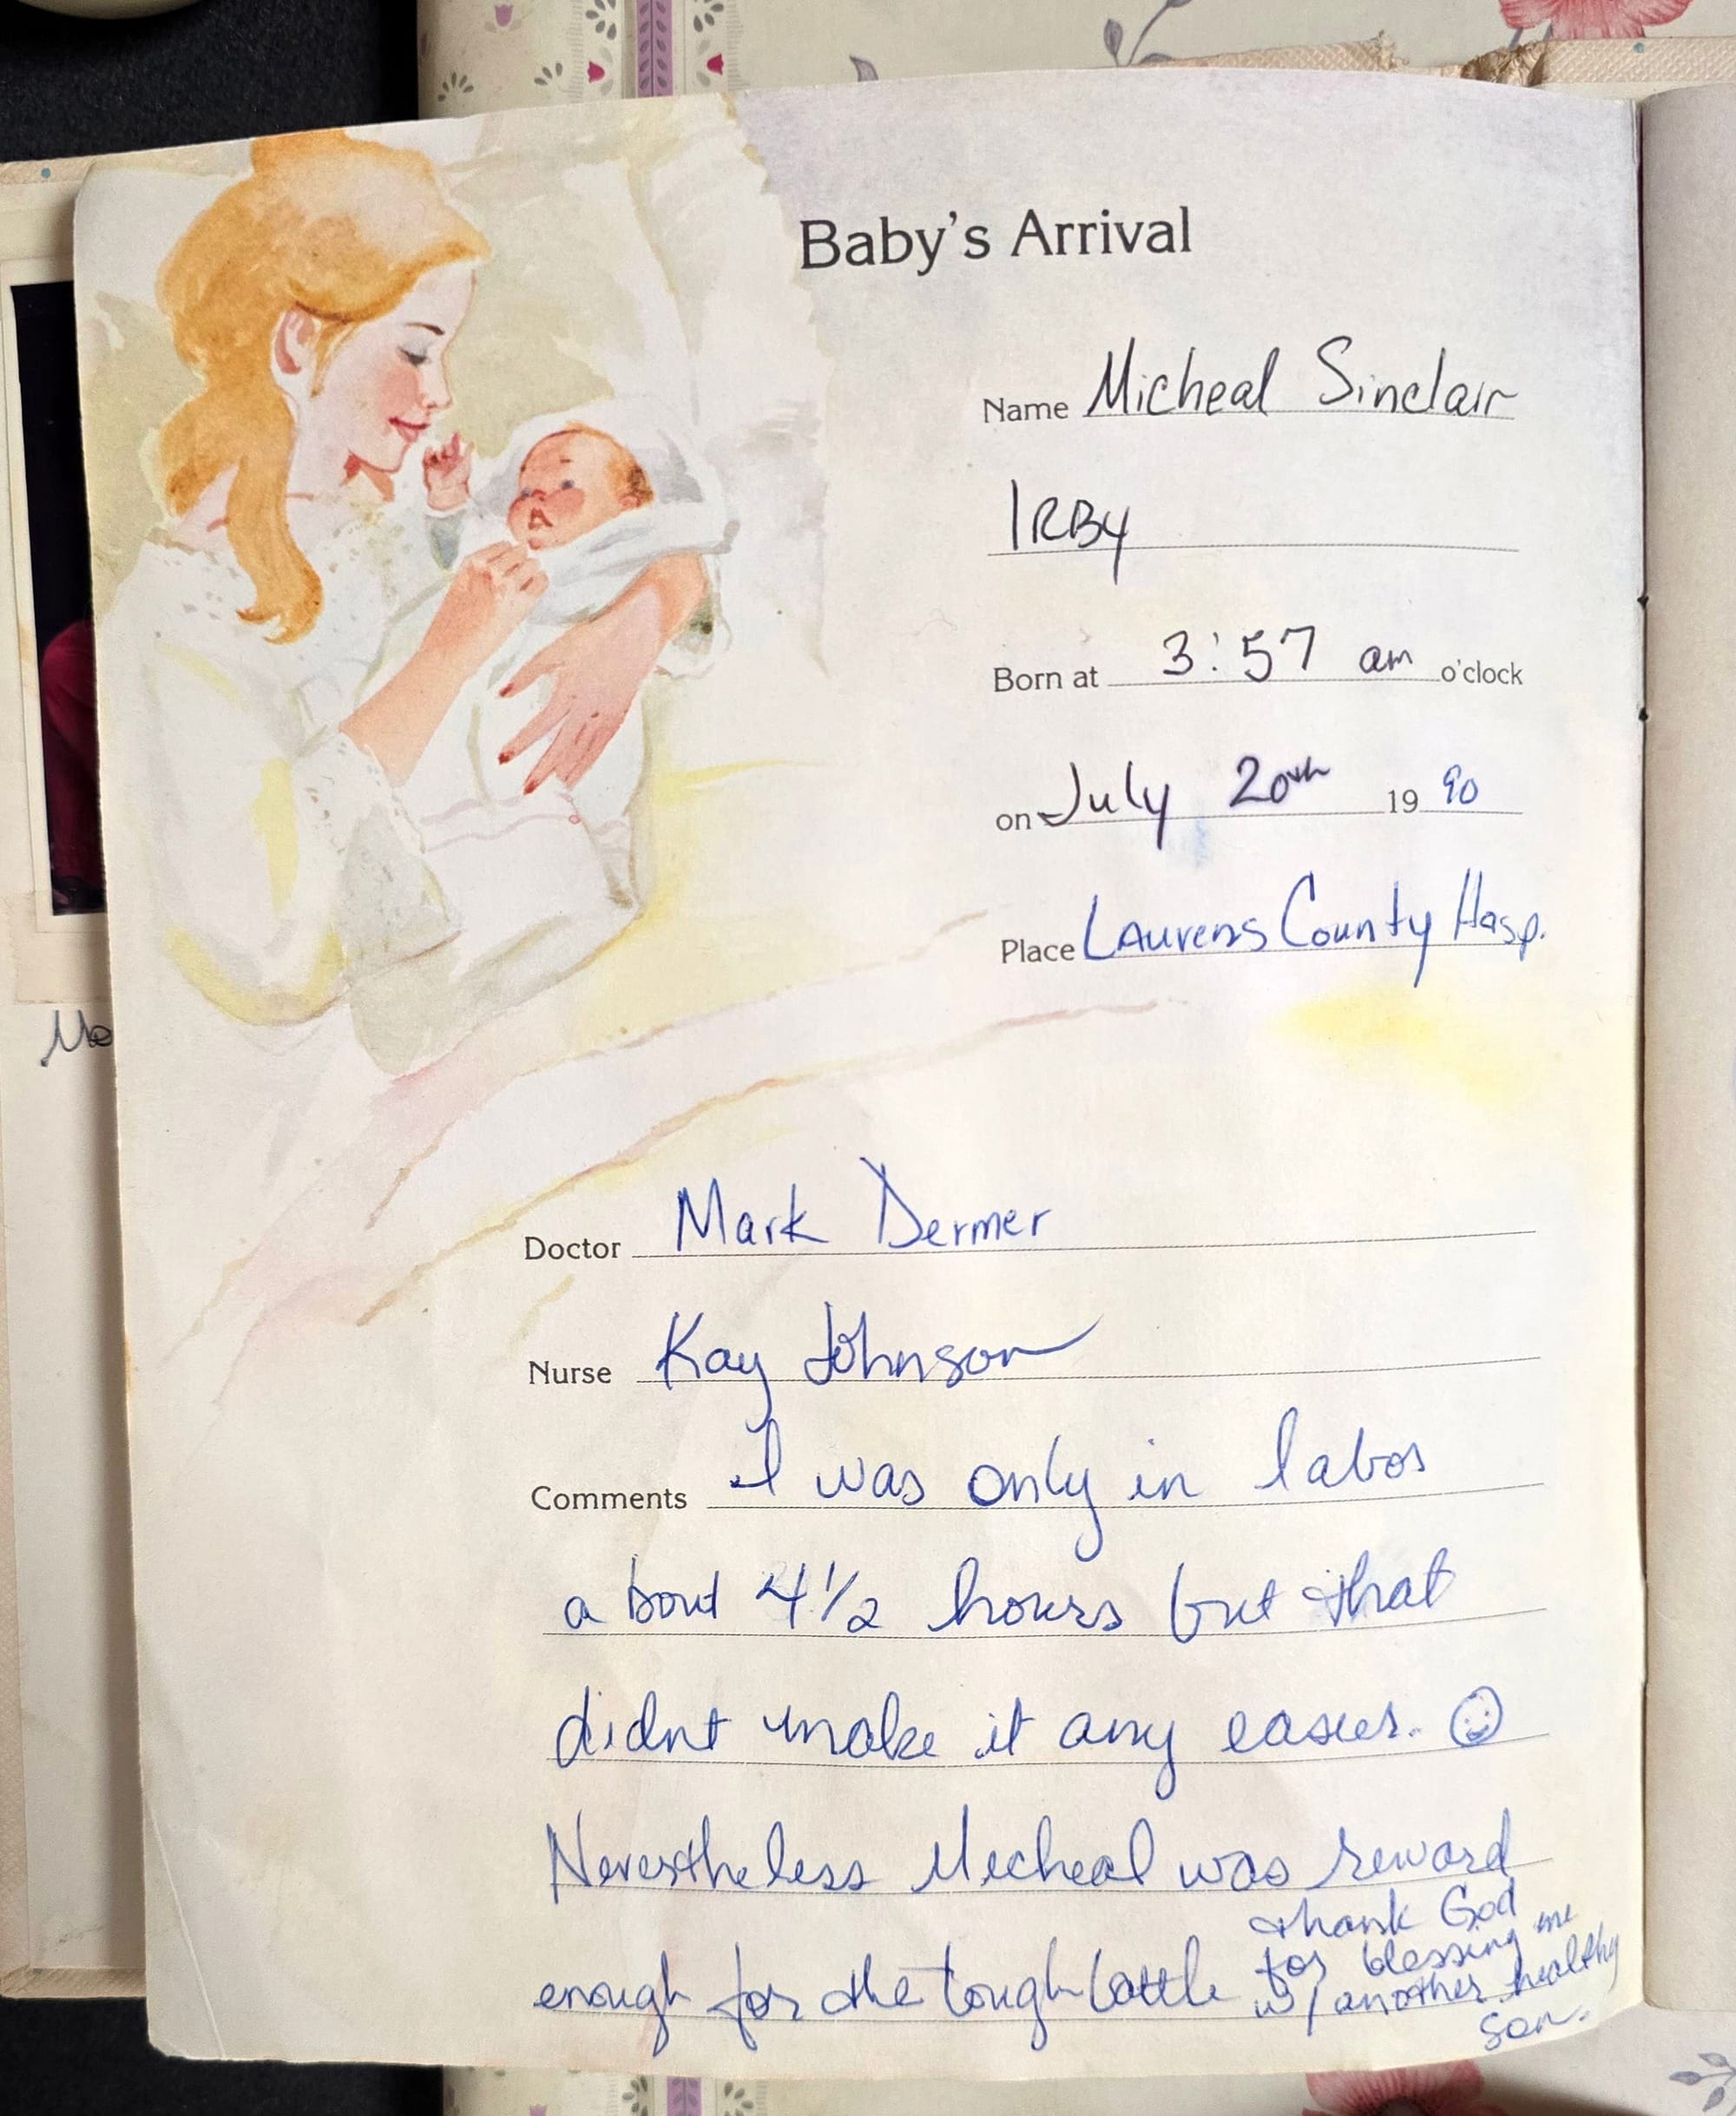 Baby's Arrival
Name Micheal Sinclair
IRBY
Born at 3:57 am o'clock
on July 20th 19 90
Place Laurens County Hosp.
Doctor Mark Dermer
Nurse Kay Johnson
Comments I was only in labor
about 4 1/2 hours but that
didnt make it any easier. ☺
Nevertheless Micheal was reward
enough for the tough battle
thank God
for blessing me
w/ another healthy
son.